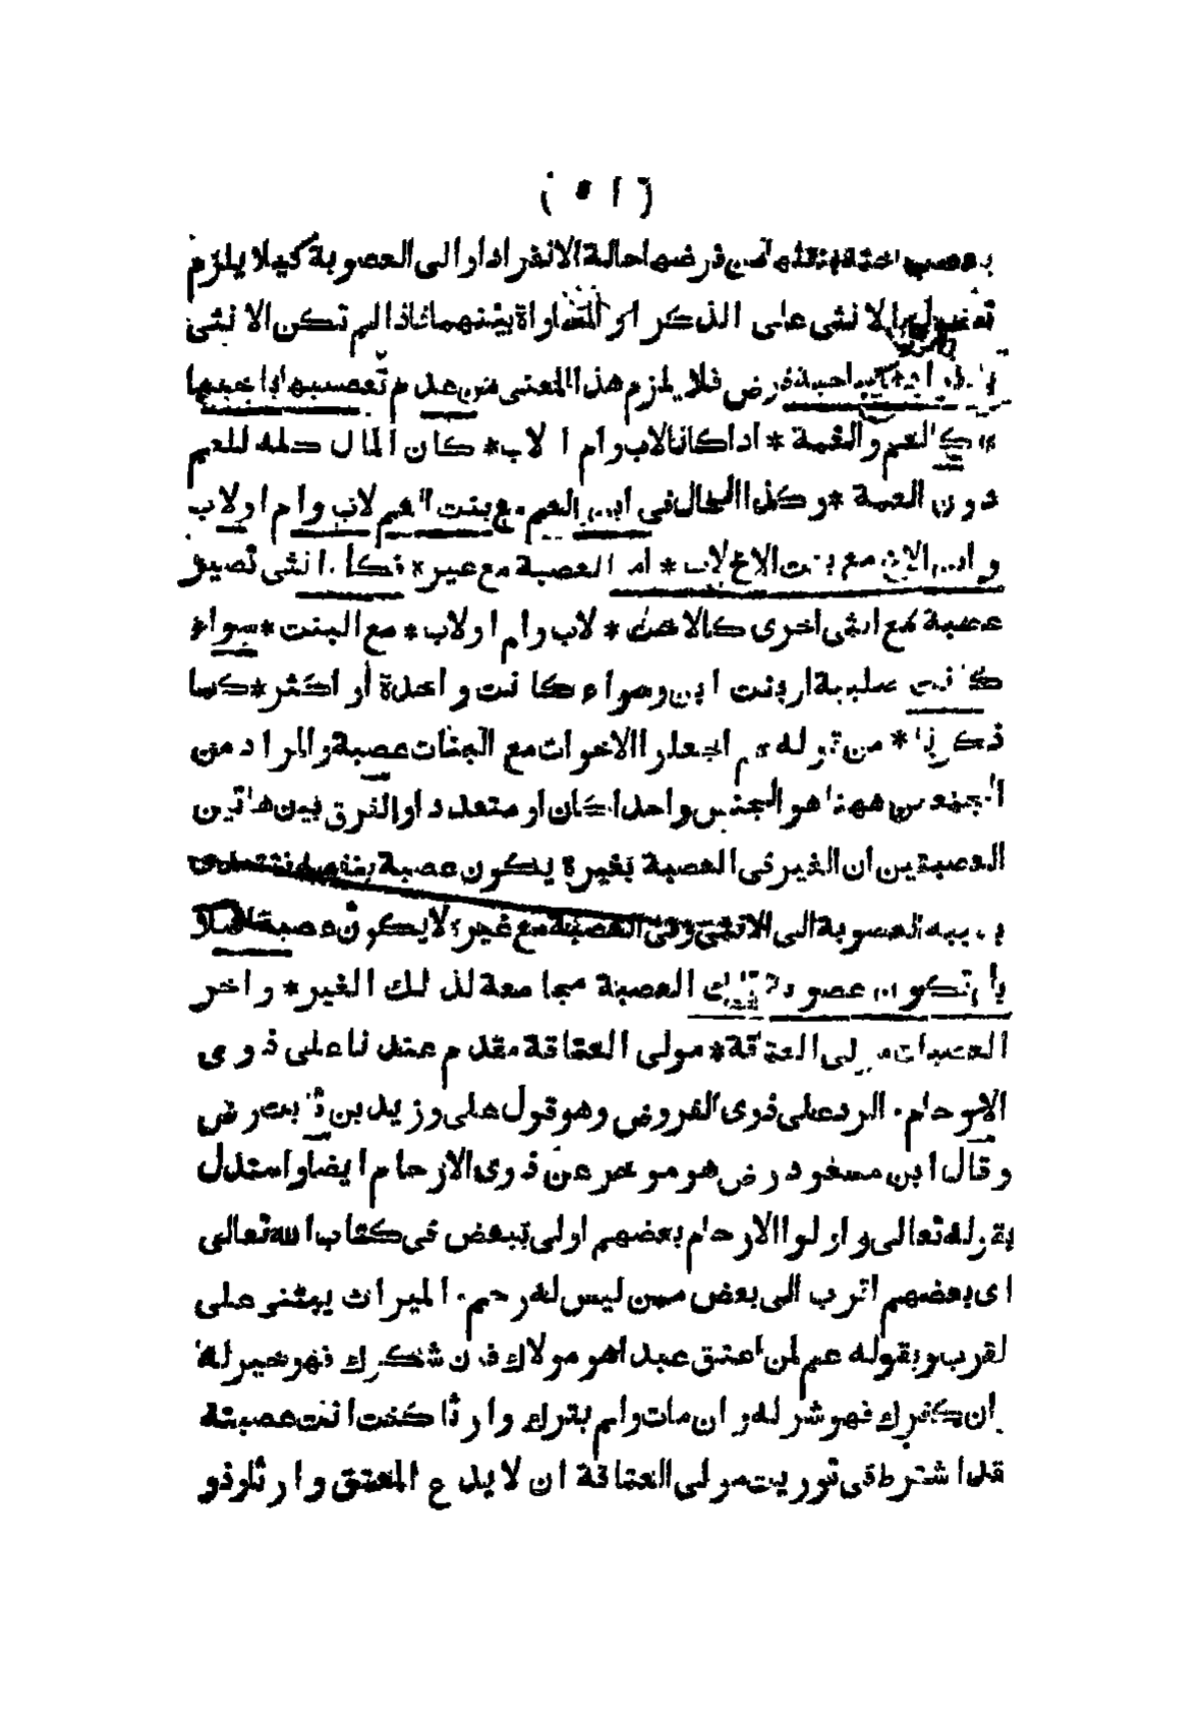 ( ٥١ )
بعصب اخته بنقلها من فرضها حالة الانفراد او الى العصوبة كيلا يلزم
تفضيل الانثى على الذكر او المساواة بينهما فاذا لم تكن الانثى
فرض فلا يلزم هذا المعنى من عدم تعصيبها باخيها
كالعم والعمة * اذا كانا لاب وام او لاب * كان المال كله للعم
دون العمة * وكذا الحال فى ابن العم مع بنت العم لاب وام او لاب
وابن الاخ مع بنت الاخ لاب * اما العصبة مع غيره فكل انثى تصير
عصبة مع انثى اخرى كالاخت * لاب وام او لاب * مع البنت * سواء
كانت صلبية او بنت ابن وسواء كانت واحدة او اكثر * كما
ذكرنا * من قوله عم اجعلوا الاخوات مع البنات عصبة والمراد من
الجمعين ههنا هو الجنس واحدا كان او متعددا والفرق بين هاتين
العصبتين ان الغير فى العصبة بغيره يكون عصبة بنفسه فتتعدى
بسببه العصوبة الى الانثى وفى العصبة مع غيره لا يكون عصبة اصلا
بل تكون عصوبة تلك العصبة مجامعة لذلك الغير * واخر
العصبات مولى العتاقة * مولى العتاقة مقدم عندنا على ذوى
الارحام والرد على ذوى الفروض وهو قول على وزيد بن ثابت رض
وقال ابن مسعود رض هو موخر عن ذوى الارحام ايضا واستدل
بقوله تعالى واولوا الارحام بعضهم اولى ببعض فى كتاب الله تعالى
اى بعضهم اقرب الى بعض ممن ليس له رحم والميراث يبتنى على
لقرب وبقوله عم لمن اعتق عبدا هو مولاك فان شكرك فهو خير له
ان كفرك فهو شر له وان مات ولم يترك وارثا كنت انت عصبته
قد اشترط فى توريث مولى العتاقة ان لا يدع المعتق وارثا وذو